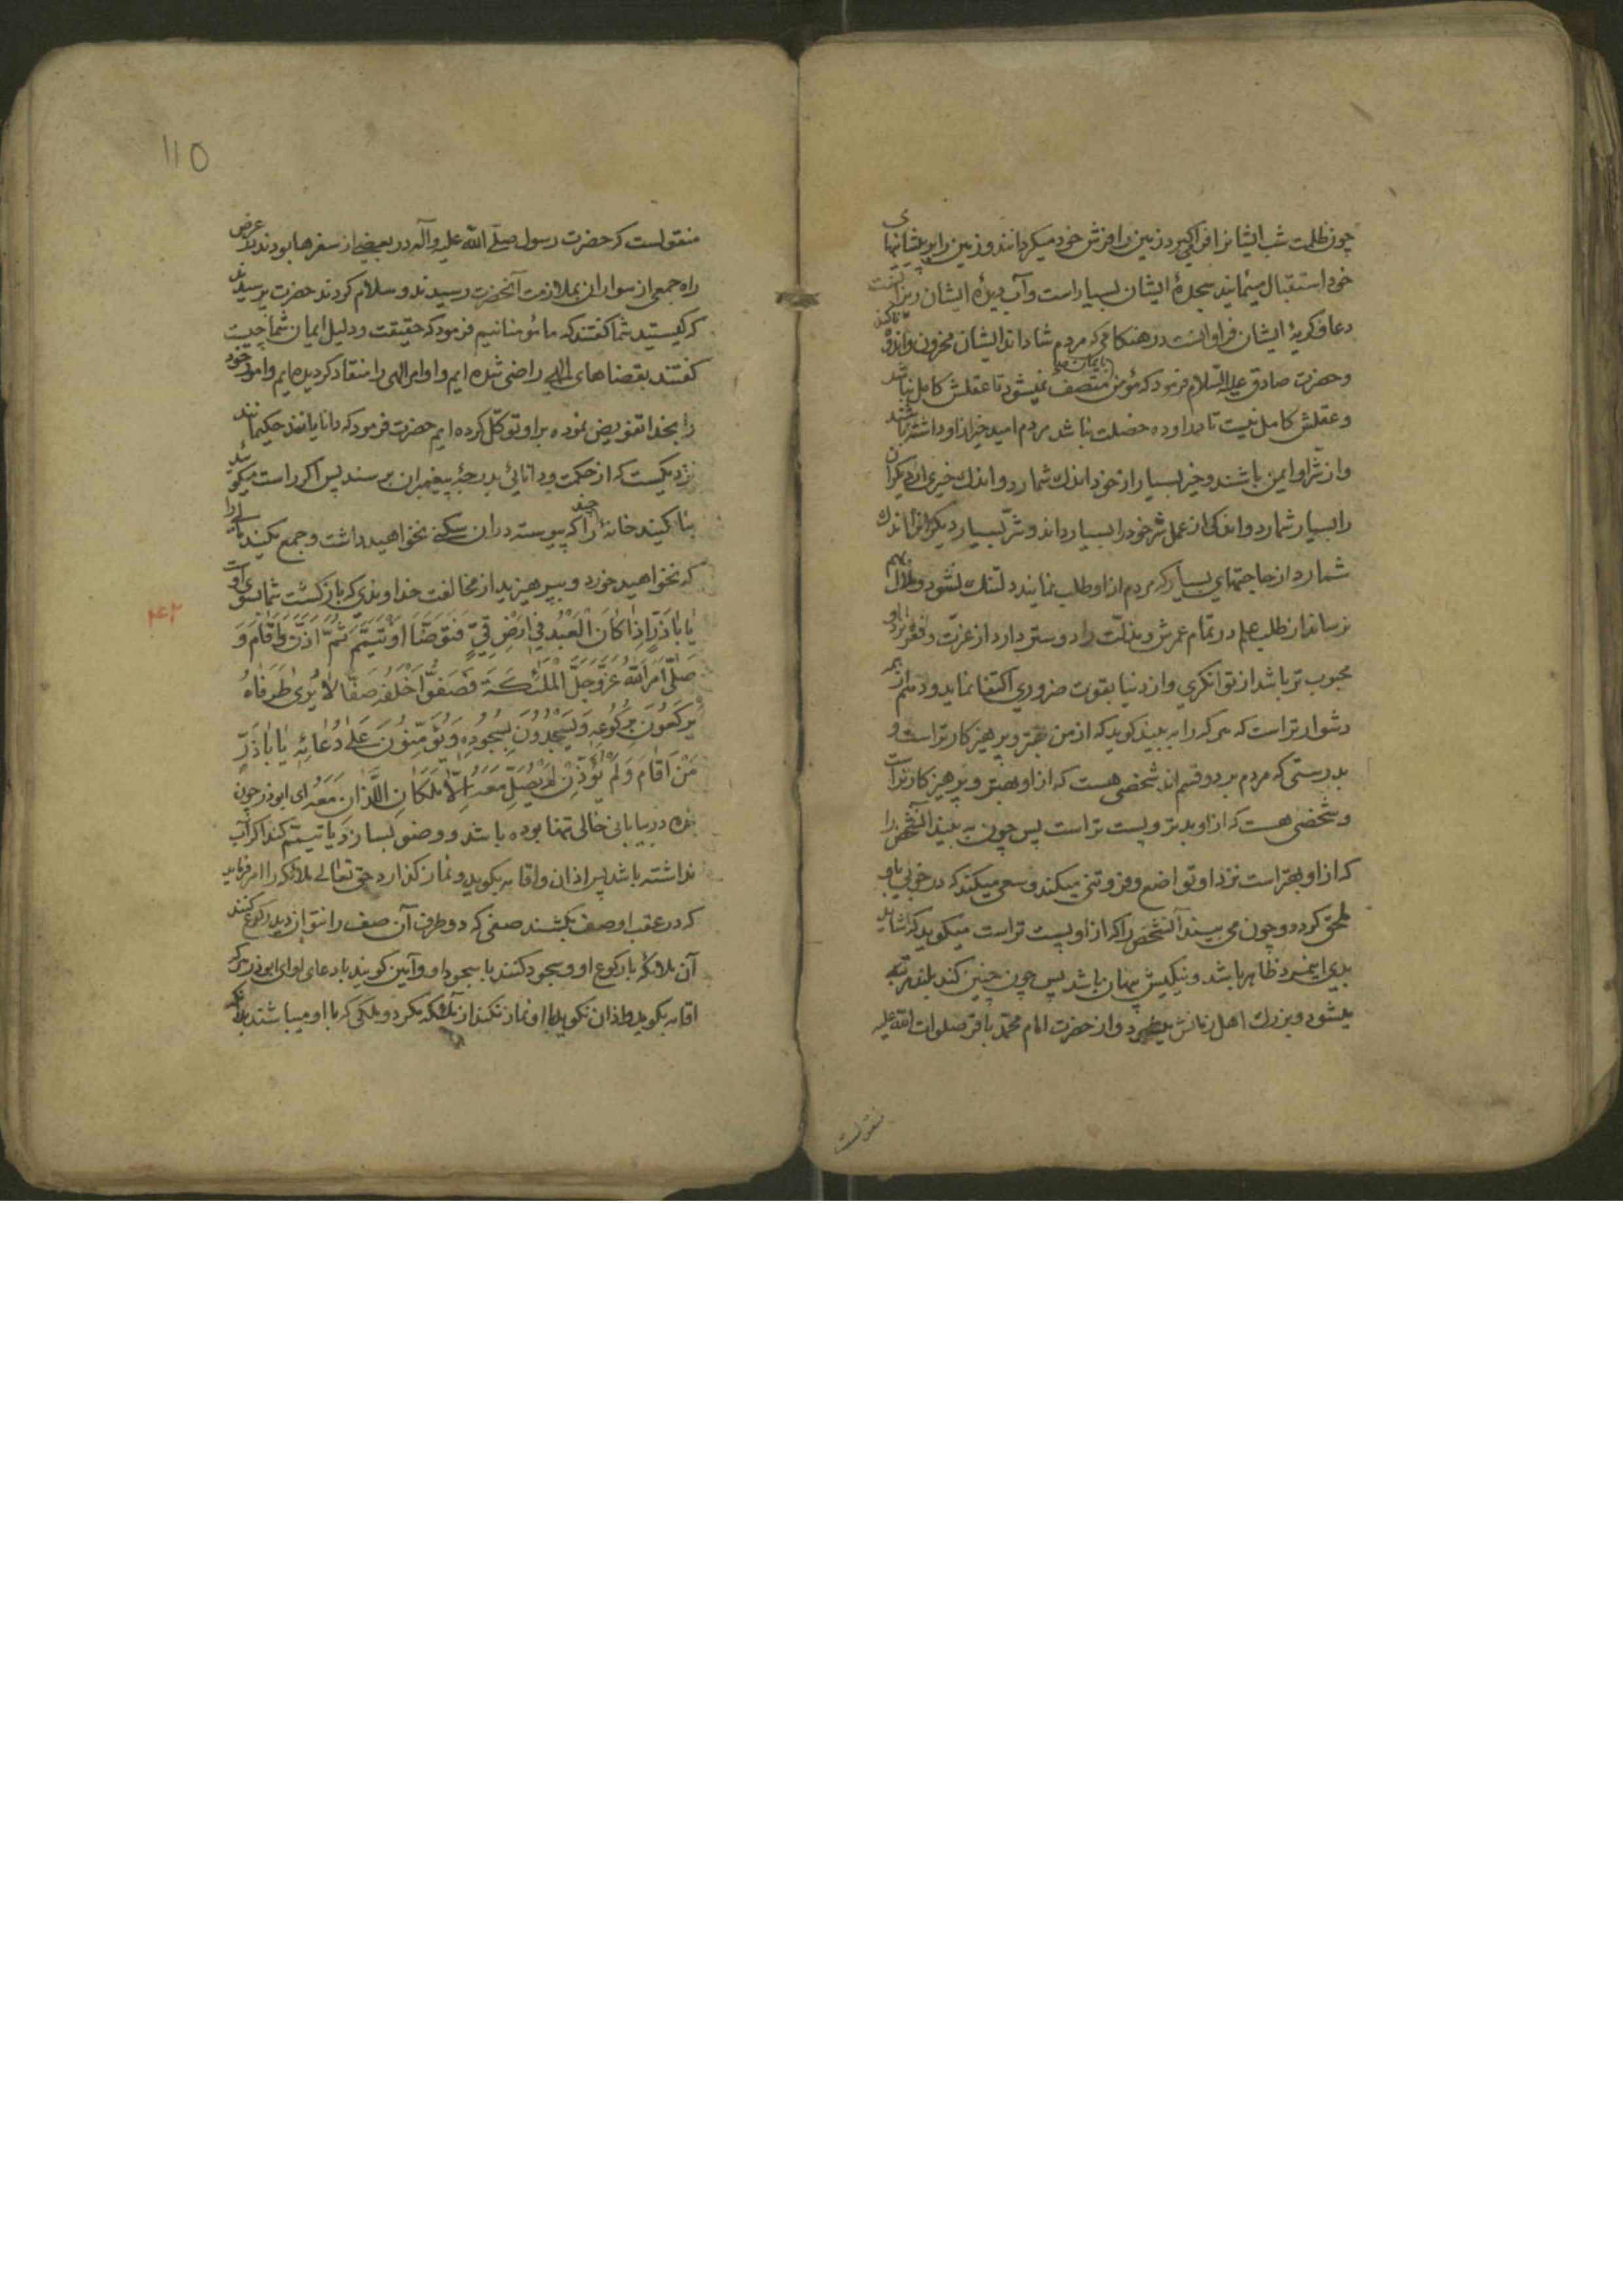 چون ظلمت شب ایشانرا فرا گیرد زمین را فرش خود میگردانند و زمین را بر پیشانیهای
خود استقبال مینمایند سجدهٔ ایشان بسیار است و آب دیدهٔ ایشان ریزانست
دعا و گریهٔ ایشان فراوانست در هنگامی که مردم شادانند ایشان محزون و اندوهناکند
و حضرت صادق علیه السلام فرمود که مؤمن بایمان متصف نمیشود تا عقلش کامل نباشد
و عقلش کامل نیست تا در او ده خصلت نباشد مردم امید خیر از او داشته باشند
و از شر او ایمن باشند و خیر بسیار از خود اندك شمارد و اندك خیری از دیگران
را بسیار شمارد و اندکی از عمل شر خود را بسیار داند و شر بسیار دیگرانرا اندك
شمارد از حاجتهای بسیار که مردم از او طلب نمایند دلتنك نشود و ملال بهم
نرساند از طلب علم در تمام عمرش و مذلّت را دوستر دارد از عزّت و فقر نزد او
محبوب تر باشد از توانگری و از دنیا بقوت ضروری اکتفا نماید و دهم از همه
دشوارتر است که هر که را به بیند گوید که از من بهتر و پرهیزکارتر است و
بدرستی که مردم بر دو قسم اند شخصی هست که از او بهتر و پرهیزکارتر است
و شخصی هست که از او بدتر و پست تر است پس چون به بیند آنشخص را
که از او بهتر است نزد او تواضع و فروتنی میکند و سعی میکند که در خوبی باو
ملحق گردد و چون می بیند آنشخص را که از او پست تر است میگوید که شاید
بدی اینمرد ظاهر باشد و نیکیش پنهان باشد پس چون چنین کند بلند مرتبه
میشود و بزرك اهل زمانش میشود و از حضرت امام محمّد باقر صلوات اللّه علیه
منقولست
110
منقولست که حضرت رسول صلّی اللّه علیه و آله در بعضی از سفرها بودند در عرض
راه جمعی از سواران بملازمت آنحضرت رسیدند و سلام کردند حضرت پرسیدند
که کیستید شما گفتند که ما مؤمنانیم فرمود که حقیقت و دلیل ایمان شما چیست
گفتند بقضاهای الهی راضی شده ایم و اوامر الهی را منقاد گردیده ایم و امور خود
را بخدا تفویض نموده بر او توکّل کرده ایم حضرت فرمود که دانایانند حکیمانند
نزدیکست که از حکمت و دانائی بدرجهٔ پیغمبران برسند پس اگر راست میگوئید
بنا مکنید خانهٔ چند را که پیوسته در آن سکنی نخواهید داشت و جمع مکنید مالی را
که نخواهید خورد و بپرهیزید از مخالفت خداوندی که بازگشت شما بسوی اوست
۴۲
یٰا اَبٰاذَرٍّ اِذٰا کٰانَ الْعَبْدُ فِی اَرْضٍ قِیٍّ فَتَوَضَّأَ اَوْ تَیَمَّمَ ثُمَّ اَذَّنَ وَاَقٰامَ وَ
صَلّٰی اَمَرَ اللّٰهُ عَزَّوَجَلَّ الْمَلٰئِکَةَ فَصَفُّوا خَلْفَهُ صَفًّا لٰا یُریٰ طَرَفٰاهُ
یَرْکَعُونَ بِرُکُوعِهِ وَیَسْجُدُونَ بِسُجُودِهِ وَیُؤَمِّنُونَ عَلیٰ دُعٰائِهِ یٰا اَبٰاذَرٍّ
مَنْ اَقٰامَ وَلَمْ یُؤَذِّنْ لَمْ یُصَلِّ مَعَهُ اِلّٰا مَلَکٰانِ اللَّذٰانِ مَعَهُ ای ابوذر چون
بنده در بیابانی خالی تنها بوده باشد و وضو بسازد یا تیمّم کند اگر آب
نداشته باشد پس اذان و اقامه بگوید و نماز گذارد حق تعالی ملائکه را امر فرماید
که در عقب او صف بکشند صفی که دو طرف آن صف را نتوان دید رکوع کنند
آن ملائکه با رکوع او و سجود کنند با سجود او و آمین گویند با دعای او ای ابوذر هر که
اقامه بگوید و اذان نگوید با او نماز نکند از ملائکه مگر دو ملکی که با او میباشند بدانکه